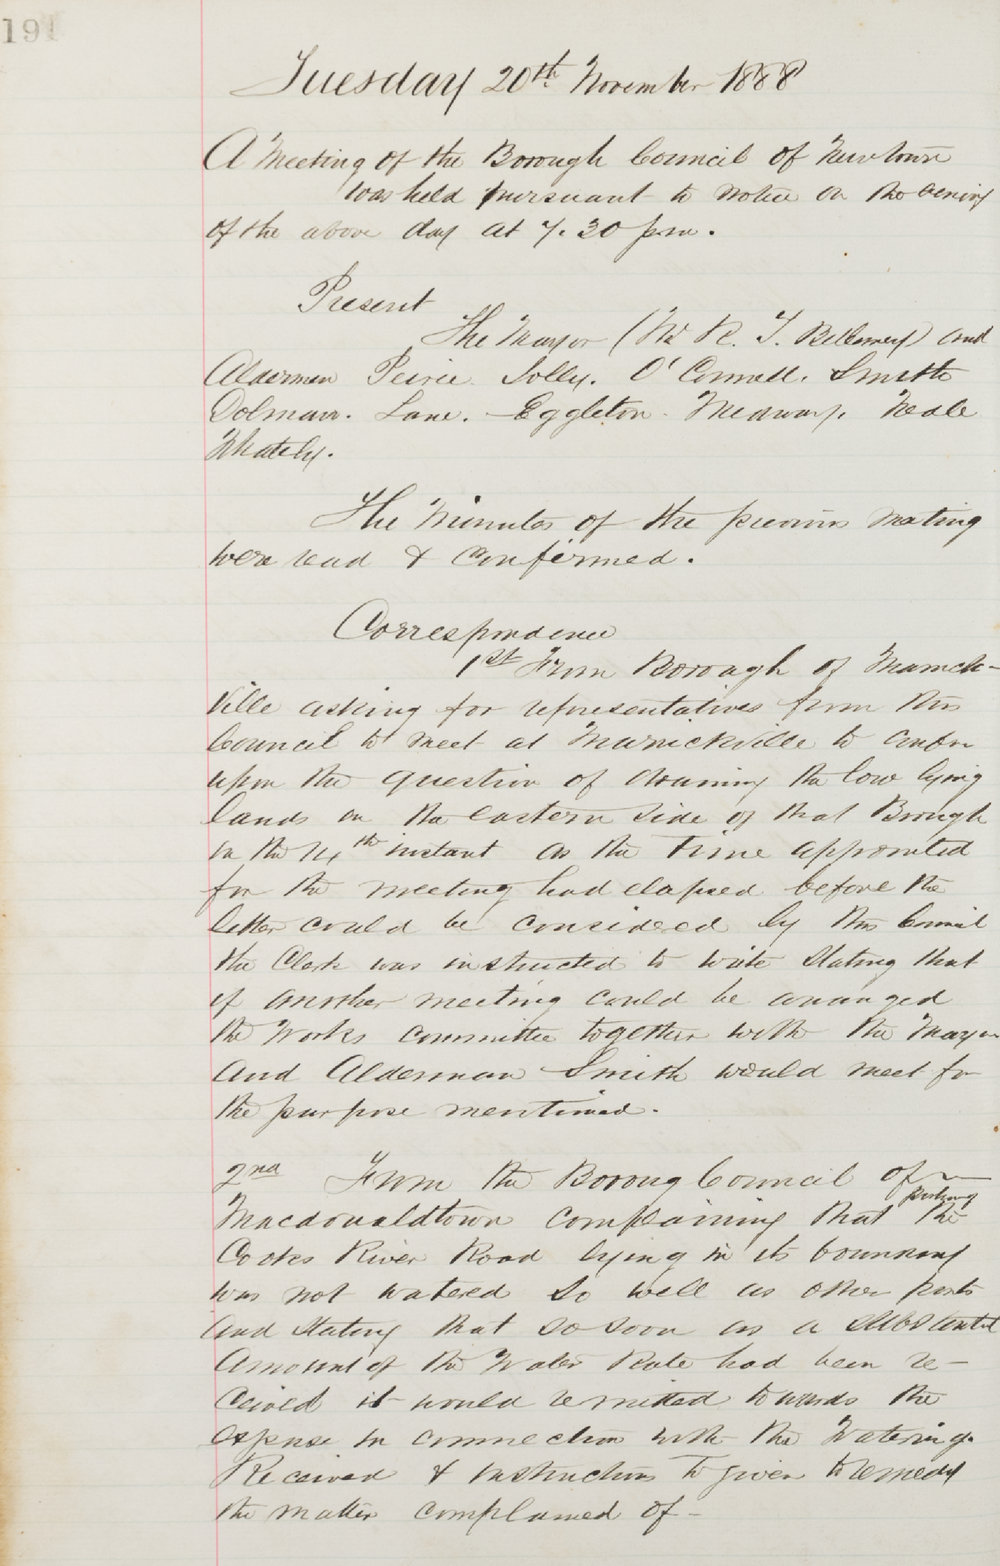 191
Tuesday 20th November 1888
A Meeting of the Borough Council of Newtown
was held pursuant to notice on the evening
of the above day at 7.30 pm.
Present
The Mayor (Mr R. T. Bellemey) and
Aldermen Peirce. Jolly. O'Connell. Smith
Dolman. Lane. Eggleton. Medway. Neale
Whately.
The Minutes of the previous meeting
were read & confirmed.
Correspondence
1st From Borough of Marrick-
ville asking for representatives from this
Council to meet at Marrickville to confer
upon the question of draining the low lying
lands on the eastern side of that Borough
on the 14th instant as the time appointed
for the meeting had elapsed before the
letter could be considered by this Council
the Clerk was instructed to write stating that
if another meeting could be arranged
the Works committee together with the Mayor
and Alderman Smith would meet for
the purpose mentioned.
2nd From the Boroug Council of
Macdonaldtown complaining that the portion
Cooks River Road lying in its boundary
was not watered so well as other parts
and stating that so soon as a substantial
amount of the Water Rate had been re-
ceived it would remitted towards the
expense in connection with the Watering.
Received & instructions to given to remedy
the matter complained of -